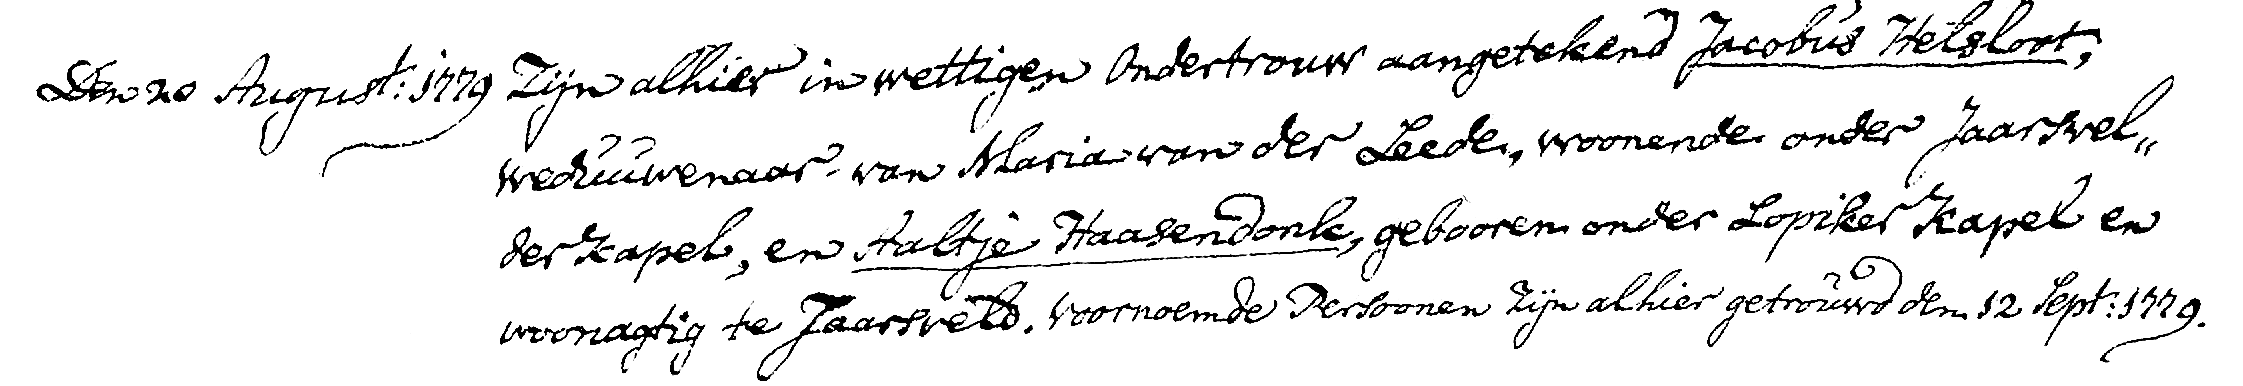 Den 20 August: 1779 Zijn alhier in wettigen Ondertrouw aangetekend Jacobus Helsloot,
weduuwenaar van Maria van der Leede, woonende onder Jaarsvel„
der Kapel, en Aaltje Haasendonk, gebooren onder Lopiker Kapel en
woonagtig te Jaarsveld. Voornoemde Persoonen Zijn alhier getrouwd den 12 Sept: 1779.